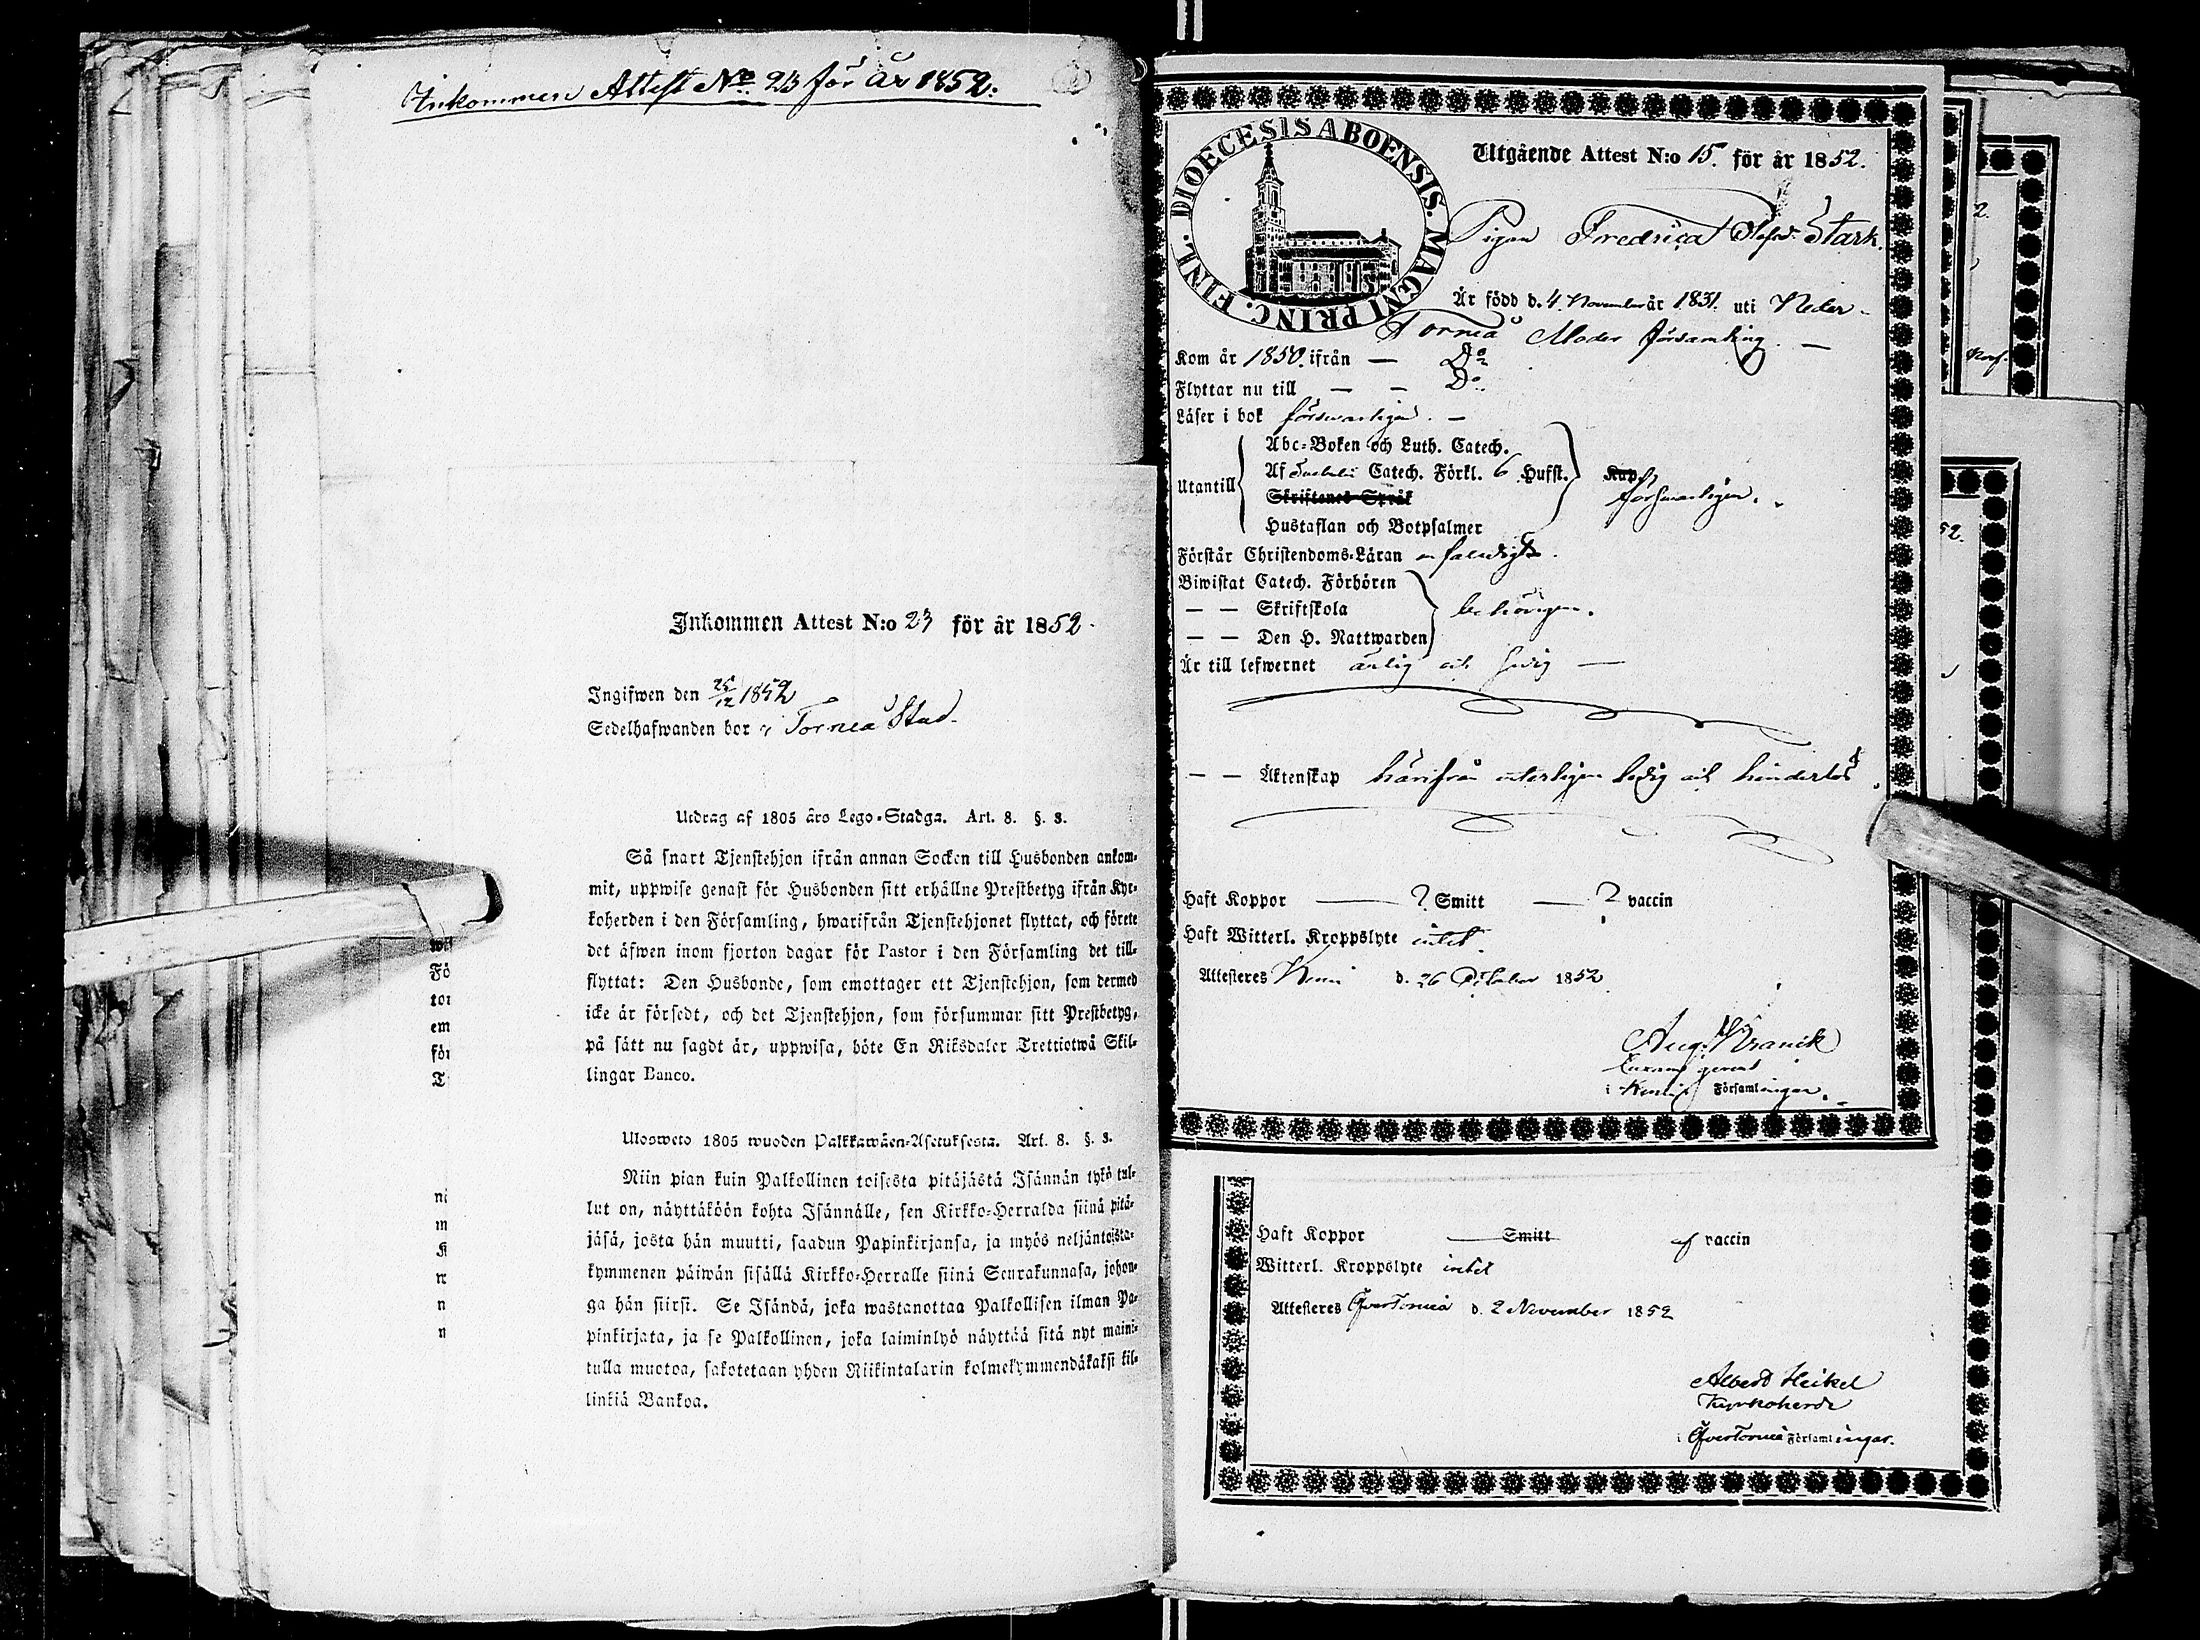 Inkommen Attest No. 23 för år 1852.
Inkommen Attest N:o 23 för år 1852.
Ingifwen den 25/12 1852
Sedelhafwanden bor i Torneå Stad.
Utdrag af 1805 års Lego-Stadga. Art. 8. §. 3.
Så snart Tjenstehjon ifrån annan Socken till Husbonden ankom-
mit, uppwise genast för Husbonden sitt erhållne Prestbetyg ifrån Kyr-
koherden i den Församling, hwarifrån Tjenstehjonet flyttat, och förete
det äfwen inom fjorton dagar för Pastor i den Församling det till-
flyttat: Den Husbonde, som emottager ett Tjenstehjon, som dermed
icke är försedt, och det Tjenstehjon, som försummar sitt Prestbetyg,
på sätt nu sagdt är, uppwisa, böte En Riksdaler Trettiotwå Skil-
lingar Banco.
Ulosweto 1805 wuoden Palkkawäen-Asetuksesta. Art. 8. §. 3.
Niin pian kuin Palkollinen toisesta pitäjästä Isännän tykö tul-
lut on, näyttäköön kohta Isännälle, sen Kirkko-Herralda siinä pitä-
jäsä, josta hän muutti, saadun Papinkirjansa, ja myös neljäntoista-
kymmenen päiwän sisällä Kirkko-Herralle siinä Seurakunnasa, johon-
ga hän siirsi. Se Isändä, joka wastanottaa Palkollisen ilman Pa-
pinkirjata, ja se Palkollinen, joka laiminlyö näyttää sitä nyt maini-
tulla muotoa, sakotetaan yhden Riikintalarin kolmekymmendäkaksi kil-
linkiä Bankoa.
DIOECESIS ABOENSIS. MAGNI PRINC. FINL.
Utgående Attest N:o 15. för år 1852.
Pigan Fredrica Stark.
Är född d. 4 November år 1831. uti Neder-
Torneå Moder församling. —
Kom år 1850. ifrån — Do
Flyttar nu till — — Do.
Läser i bok försvarligen. —
Utantill
Abc-Boken och Luth. Catech.
Af Catech. Förkl. 6 Hufst.
Skriftenes Språk
Hustaflan och Botpsalmer
försvarligen.
Förstår Christendoms-Läran enfaldigt.
Biwistat Catech. Förhören
— — Skriftskola behörigen.
— — Den H. Nattwarden
Är till lefwernet ärlig och sedig —
— — Äktenskap härifrån ledig och hinderlös.
Haft Koppor — ? Smitt — ? vaccin
Haft Witterl. Kroppslyte intet
Attesteres Kemi d. 26 October 1852
Aug. Kranck
i Kemi Församlingar.
Haft Koppor — Smitt af vaccin
Witterl. Kroppslyte intet
Attesteres ÖfverTorneå d. 2 November 1852
Albert Heikel
Kyrkoherde
i ÖfverTorneå Församlingar.